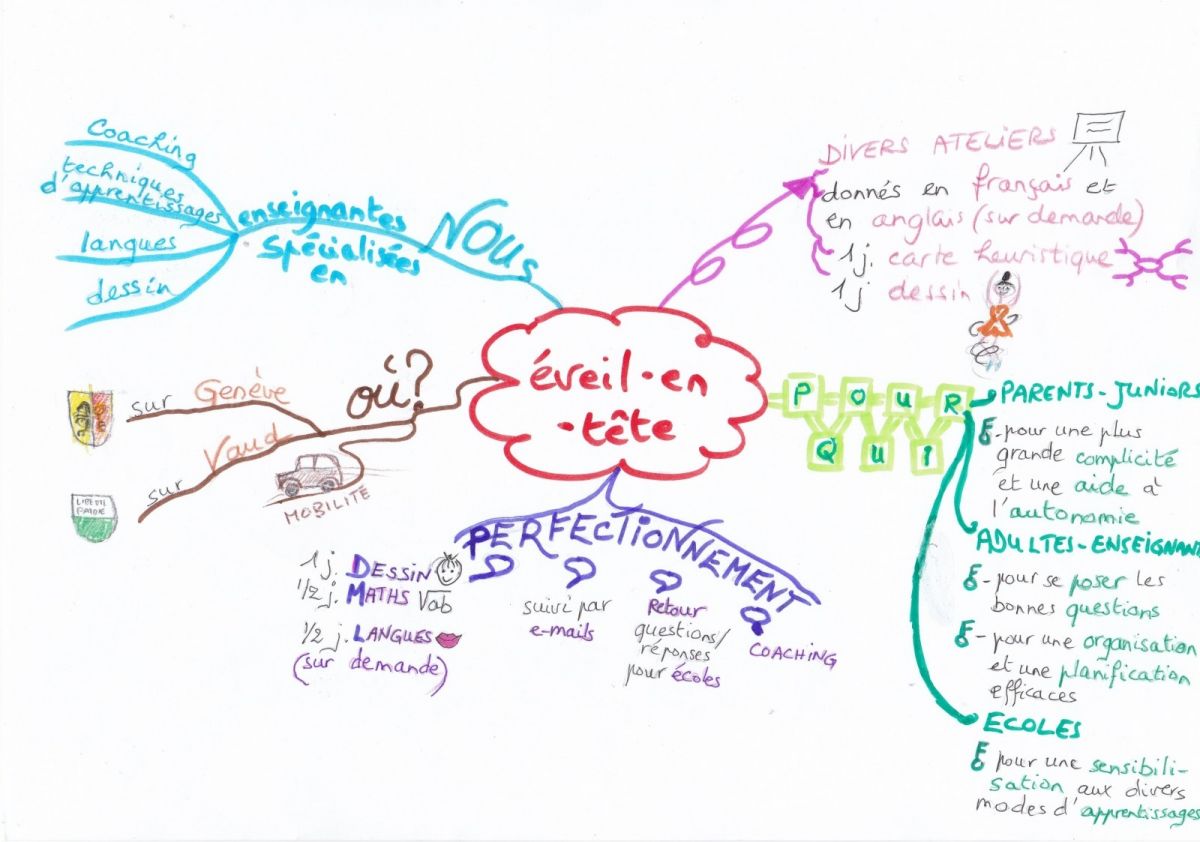 Coaching
techniques
d'apprentissages
langues
dessin
enseignantes
spécialisées
en
NOUS
DIVERS ATELIERS
donnés en français et
en anglais (sur demande)
1 j. carte heuristique
1 j dessin
éveil-en
-tête
où?
sur Genève
sur Vaud
LIBERTÉ
PATRIE
MOBILITÉ
POUR
QUI
PARENTS-JUNIORS
- pour une plus
grande complicité
et une aide à
l'autonomie
ADULTES-ENSEIGNANT
- pour se poser les
bonnes questions
- pour une organisation
et une planification
efficaces
ECOLES
pour une sensibili-
sation aux divers
modes d'apprentissages
PERFECTIONNEMENT
1 j. DESSIN
1/2 j. MATHS √ab
1/2 j. LANGUES
(sur demande)
suivi par
e-mails
Retour
questions/
réponses
pour écoles
COACHING